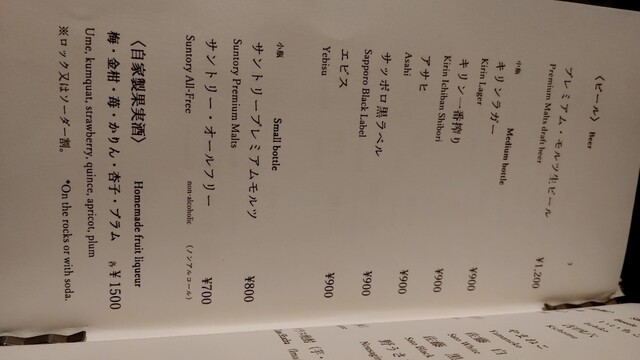 〈ビール〉 Beer
プレミアム・モルツ生ビール ¥1,200
Premium Malts draft beer
Medium bottle
キリンラガー ¥900
Kirin Lager
キリン一番搾り ¥900
Kirin Ichiban Shibori
アサヒ ¥900
Asahi
サッポロ黒ラベル ¥900
Sapporo Black Label
エビス ¥900
Yebisu
小瓶 Small bottle
サントリープレミアムモルツ ¥800
Suntory Premium Malts
サントリー・オールフリー ¥700
Suntory All-Free non-alcoholic (ノンアルコール)
〈自家製果実酒〉 Homemade fruit liqueur
梅・金柑・苺・かりん・杏子・プラム 各¥1500
Ume, kumquat, strawberry, quince, apricot, plum
※ロック又はソーダー割。 *On the rocks or with soda.
やまねこ
Yamaneko
佐藤 白
Sato White
佐藤 黒
Sato Black
野うさ